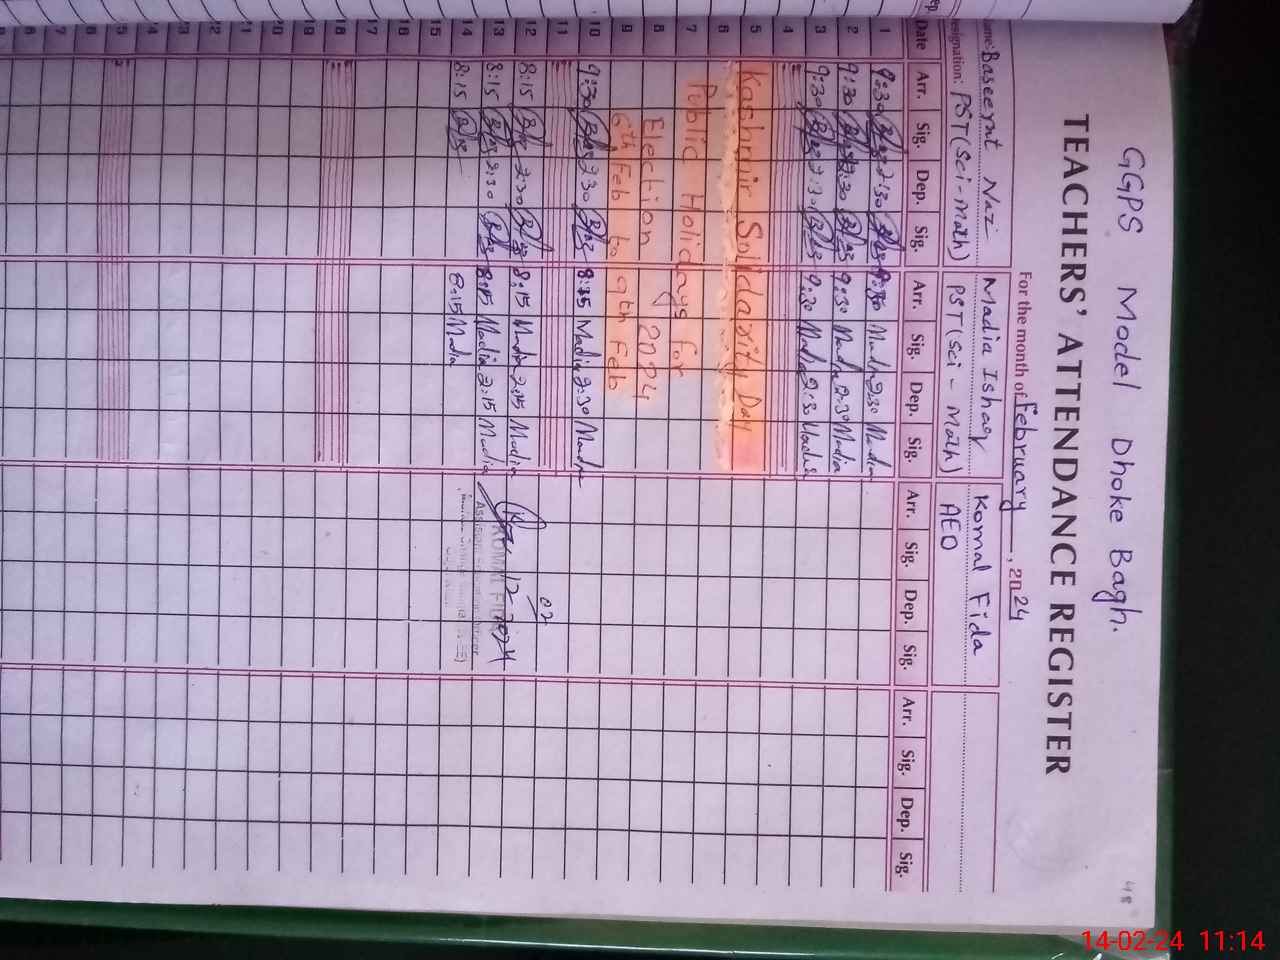 GGPS Model Dhoke Bagh.
48
TEACHERS' ATTENDANCE REGISTER
For the month of February, 2024
Name: Baseerat Naz Madia Ishaq Komal Fida
Designation: PST (Sci-Math) PST (Sci-Math) AEO
Date Arr. Sig. Dep. Sig. Arr. Sig. Dep. Sig. Arr. Sig. Dep. Sig. Arr. Sig. Dep. Sig.
1 9:30 2:30 9:30 Madia 2:30 Madia
2 9:30 2:30 9:30 Madia 2:30 Madia
3 9:30 2:30 9:30 Madia 2:30 Madia
4
5 Kashmir Solidarity Day
6
7 Public Holidays for
8 Election 2024
9 6th Feb to 9th Feb
10 9:30 2:30 8:15 Madia 2:30 Madia
11
12 8:15 2:30 8:15 Madia 2:15 Madia
02
13 8:15 2:30 8:15 Madia 2:15 Madia 12 2024
KOMAL FIDA
14 8:15 8:15 Madia
Assistant Education Officer
15
16
17
18
19
20
21
22
23
14-02-24 11:14